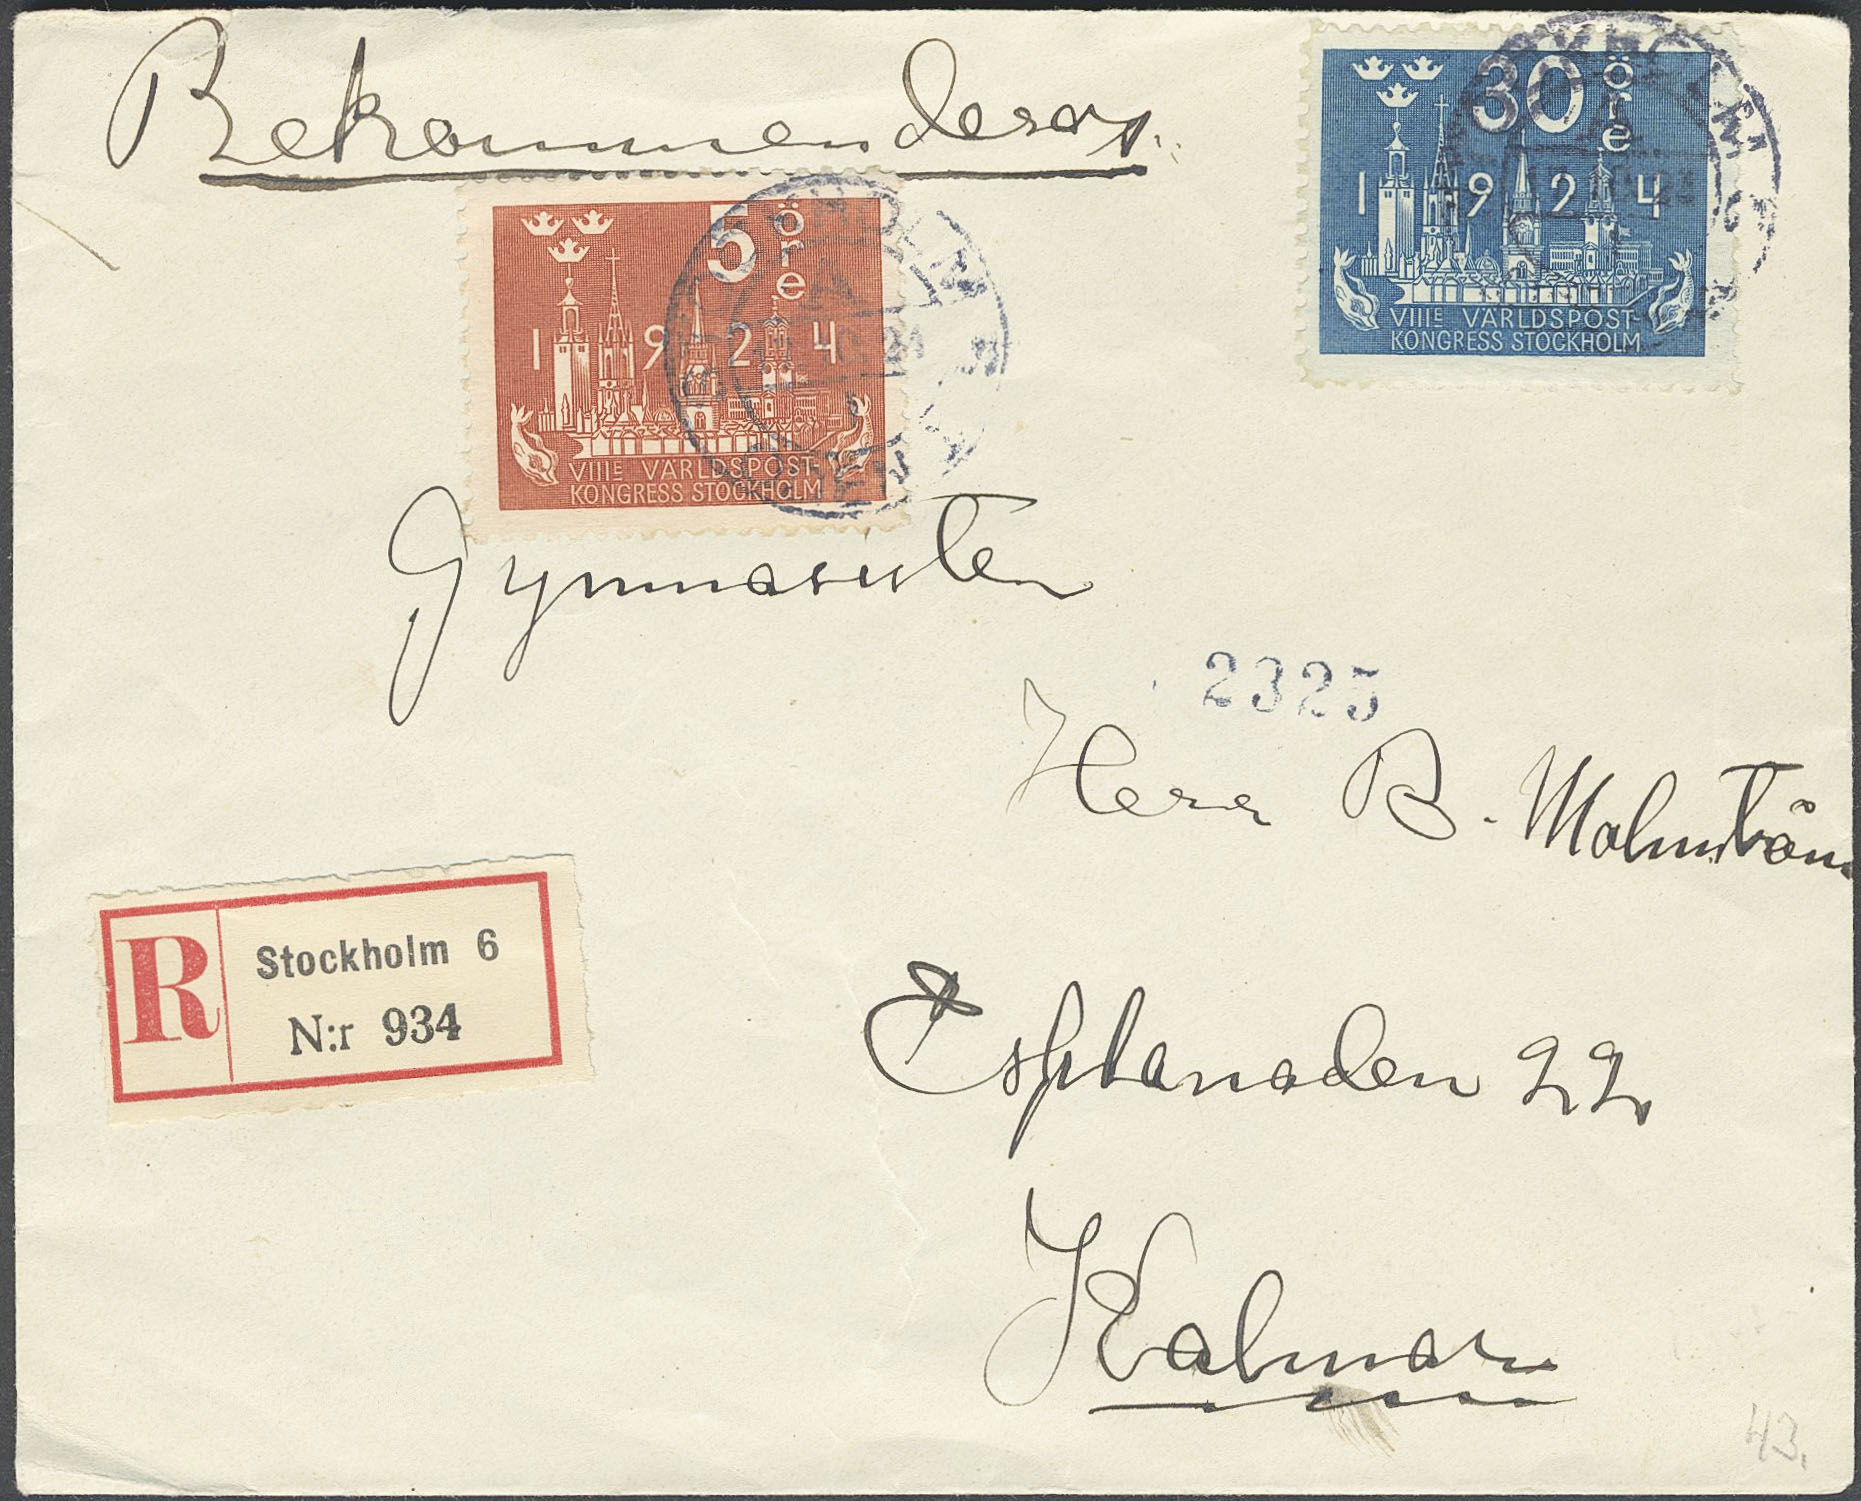 Rekommenderas.
30 öre
1924
VIIIE VÄRLDSPOST-
KONGRESS STOCKHOLM
5 öre
1924
VIIIE VÄRLDSPOST-
KONGRESS STOCKHOLM
STOCKHOLM
Gymnasisten
2325
Herr B. Malmström
R Stockholm 6
N:r 934
Esplanaden 22
Kalmar
43.